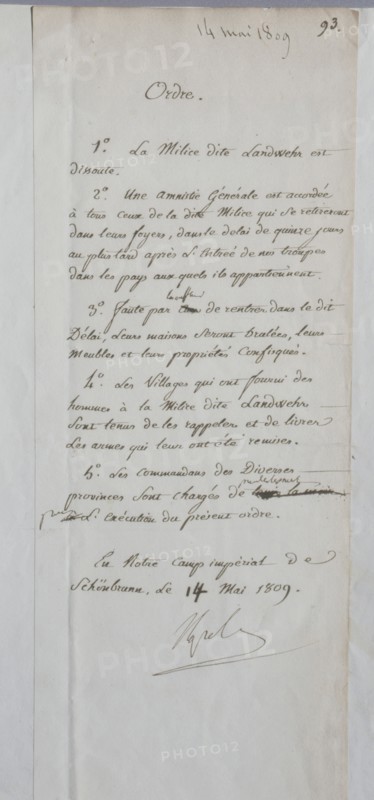 14 mai 1809
93
Ordre.
1° La Milice dite Landwehr est
dissoute.
2° Une amnistie Générale est accordée
à tous ceux de la dite Milice qui se retireront
dans leurs foyers, dans le délai de quinze jours
au plus tard après l'Entrée de nos troupes
dans les pays auxquels ils appartiennent.
3° faute par de rentrer dans le dit
Délai, Leurs maisons seront brulées, Leurs
Meubles et leurs propriétés Confisqués.
4° Les Villages qui ont fourni des
hommes à la Milice dite Landwehr
sont tenus de les rappeler et de livrer
Les armes qui leur ont été remises.
5° Les commandans des Diverses
provinces sont chargés de
L'exécution du présent ordre.
En Notre Camp impérial de
Schönbrunn, Le 14 Mai 1809.
PHOTO12